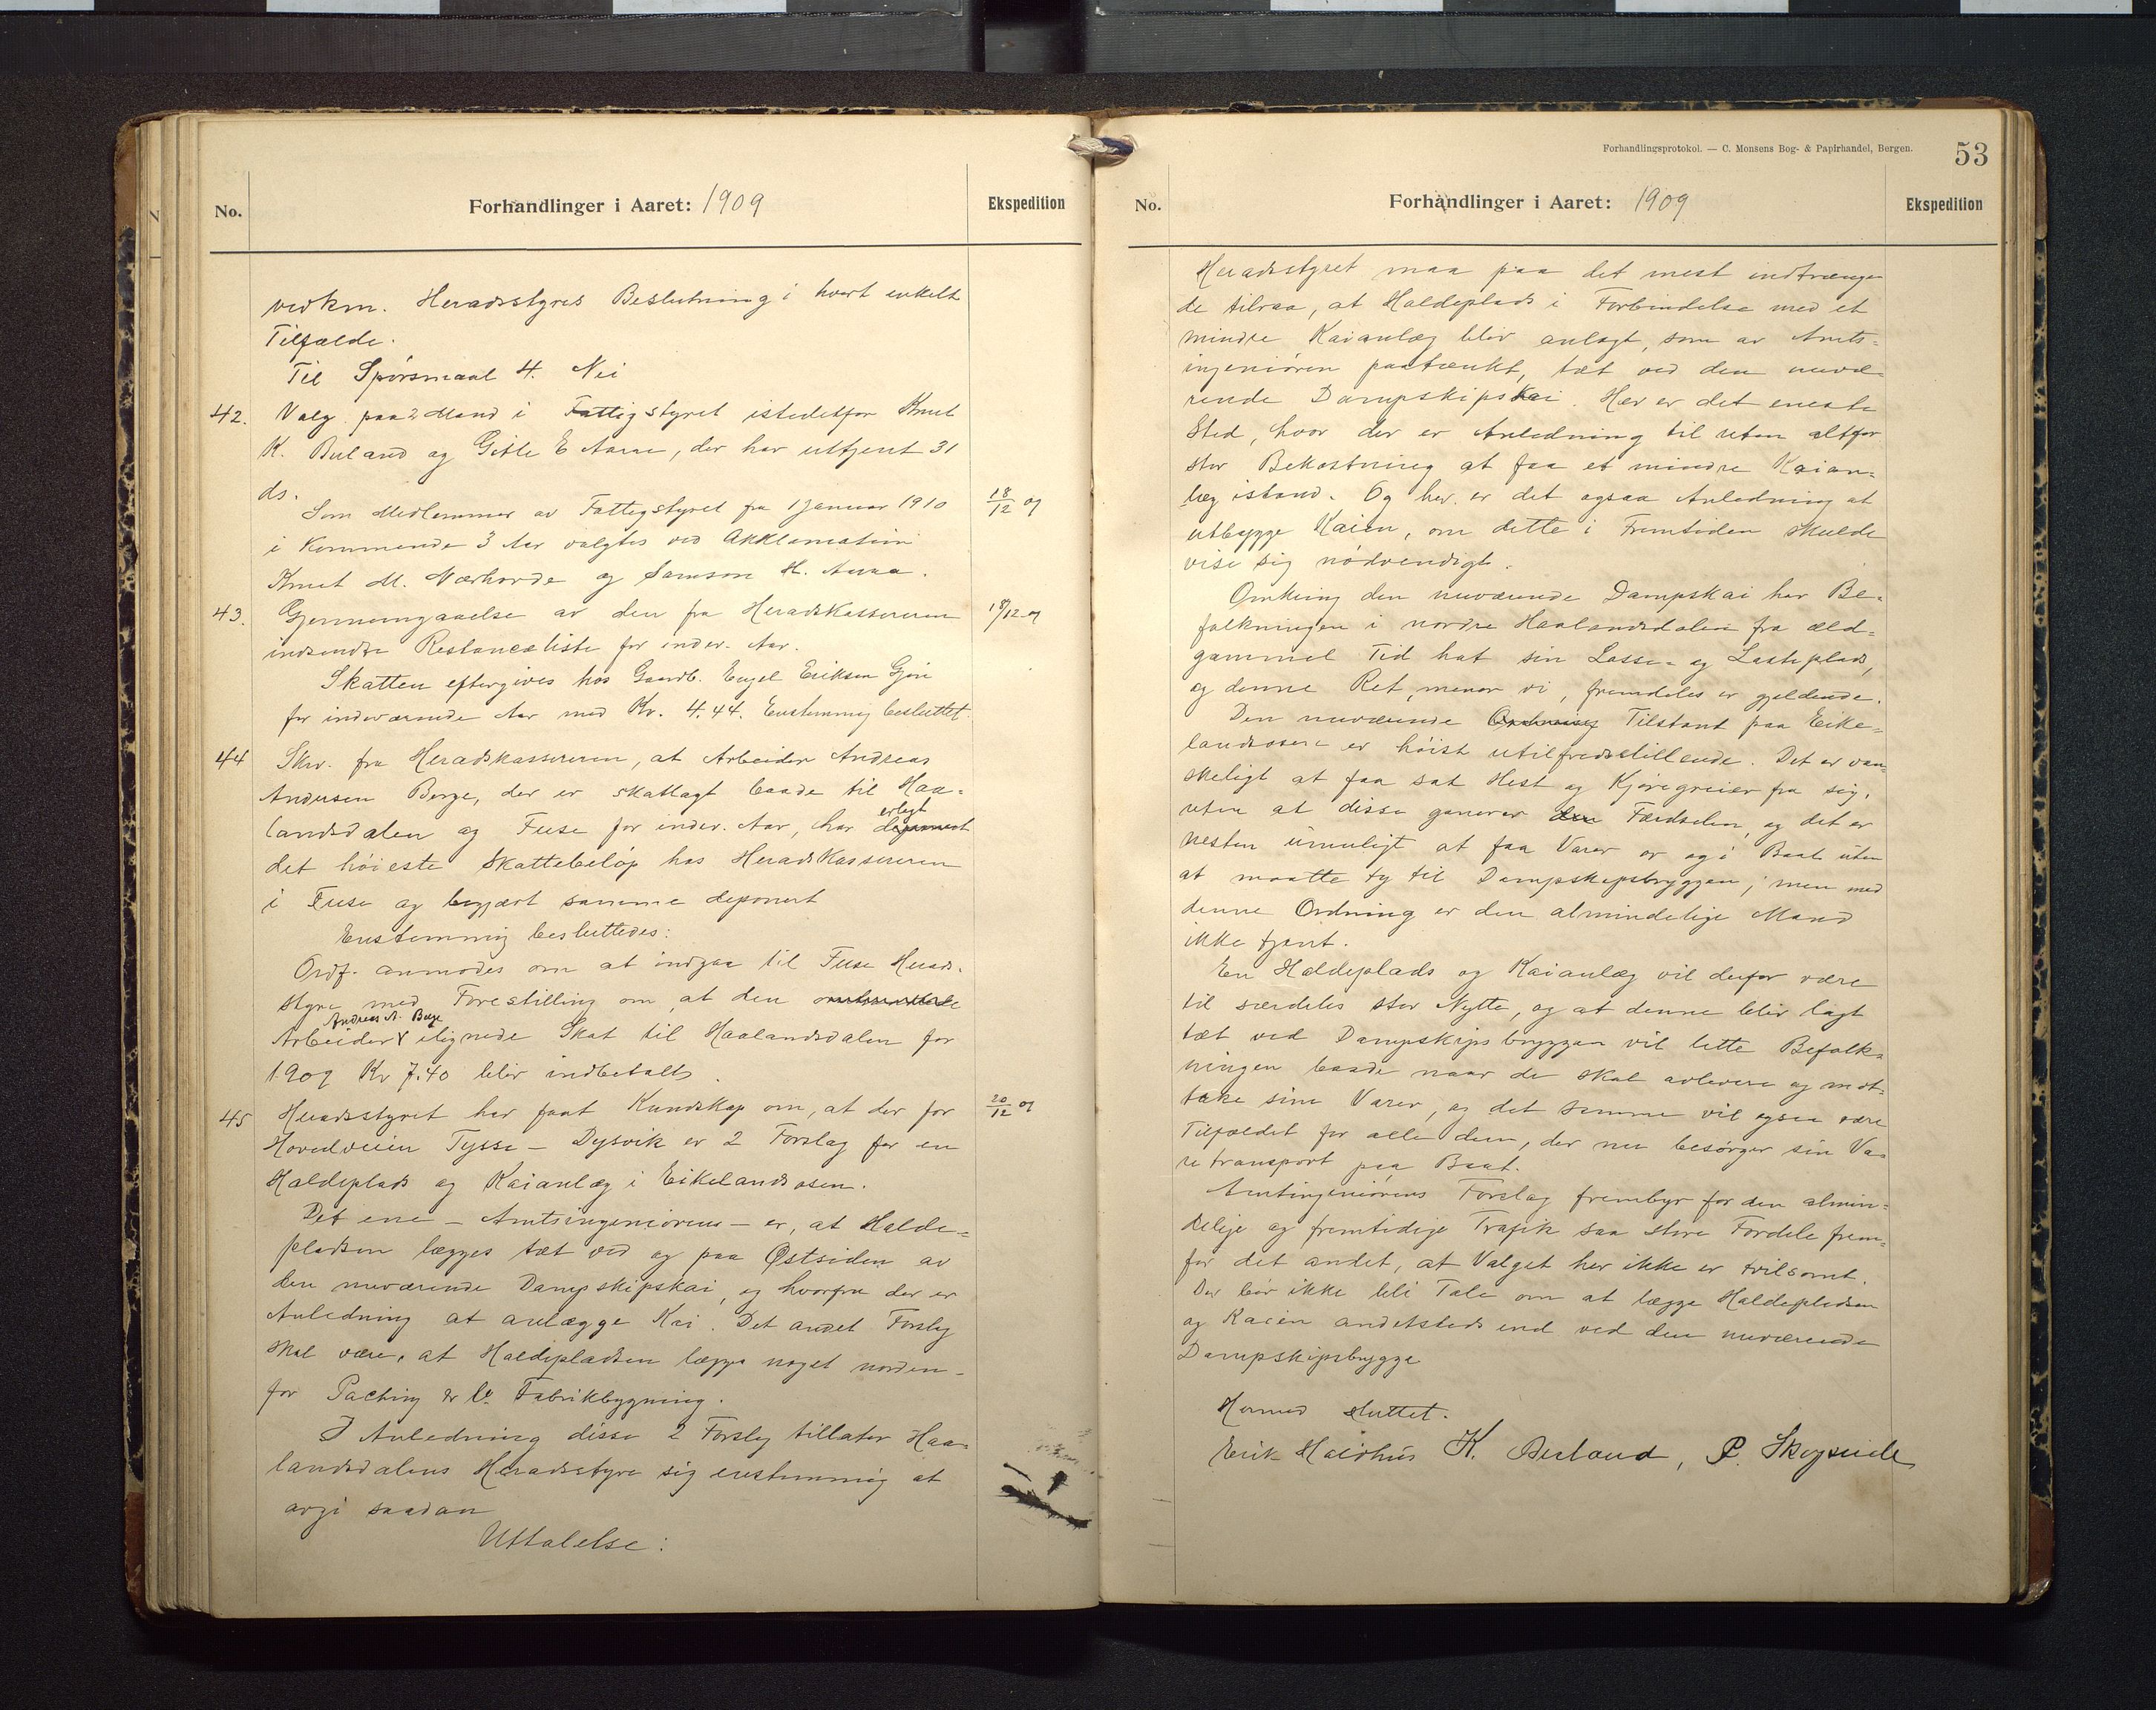 No.
Forhandlinger i Aaret: 1909
Ekspedition
vedkm. Heradsstyres Beslutning i hvert enkelt
Tilfælde.
Til Spörsmaal 4. Nei
42. Valg paa 2 Mand i Fattigstyret istedetfor Knut
K. Buland og Gitle E Aarra, der har uttjent 31
ds.
Som Medlemmer av Fattigstyret fra 1 Januar 1910 18/12 09
i kommende 3 Aar valgtes ved Akklamation
Knut M. Nærhovde og Samson H. Aarra.
43. Gjennemgaaelse av den fra Heradskassereren 18/12 09
indsendte Restanceliste for indev. Aar.
Skatten eftergives hos Gaardb. Engel Eriksen Gjøn
for indeværende Aar med Kr. 4.44. Enstemmig besluttet.
44 Skr. fra Heradskassereren, at Arbeider Andreas
Andersen Berge, der er skatlagt baade til Haa-
landsdalen og Fuse for indev. Aar, har erlagt
det höieste Skattebelöp hos Heradskassereren
i Fuse og begjært samme deponert
Enstemmig besluttedes:
Ordf. anmodes om at indgaa til Fuse Herads-
styre med Forestilling om at den
Arbeider Andreas A. Berge ilignede Skat til Haalandsdalen for
1909 Kr 7.40 blir indbetalt.
45 Heradsstyret har faat Kundskap om, at der for 20/12 09
Hovedveien Tysse - Dysvik er 2 Forslag for en
Holdeplads og Kaianlæg i Eikelandsosen.
Det ene - Amtsingeniörens - er, at Holde-
pladsen lægges tæt ved og paa Østsiden av
den nuværende Dampskipskai, og hvorfra der er
Anledning at anlægge Kai. Det andet Forslag
skal være, at Holdepladsen lægges noget norden-
for Packing & Co. Fabrikbygning.
I Anledning disse 2 Forslag tillater Haa-
landsdalens Heradsstyre sig enstemmig at
avgi saadan
Uttalelse:
Forhandlingsprotokol. — C. Monsens Bog- & Papirhandel, Bergen.
53
No.
Forhandlinger i Aaret: 1909
Ekspedition
Heradsstyret maa paa det mest indtrængen
de tilraa, at Holdeplads i Forbindelse med et
mindre Kaianlæg blir anlagt, som av Amts-
ingeniören paatænkt, tæt ved den nuvæ-
rende Dampskipskai. Her er det eneste
Sted, hvor der er Anledning til uten altfor
stor Bekostning at faa et mindre Kaian-
læg istand. Og her er det ogsaa Anledning at
utbygge Kaien, om dette i Fremtiden skulde
vise sig nödvendigt.
Omkring den nuværende Dampskai har Be-
folkningen i nordre Haalandsdalen fra æld-
gammel Tid hat sin Losse- og Lasteplads,
og denne Ret, mener vi, fremdeles er gjeldende.
Den nuværende Ordning Tilstand paa Eike-
landsosen er höist utilfredsstillende. Det er van-
skeligt at faa sat Hest og Kjöregreier fra sig,
uten at disse generer den Færdselen, og det er
nesten umuligt at faa Varer or og i Baat uten
at maatte ty til Dampskipsbryggen; men med
denne Ordning er den almindelige Mand
ikke tjent.
En Holdeplads og Kaianlæg vil derfor være
til særdeles stor Nytte, og at denne blir lagt
tæt ved Dampskipsbryggen vil lette Befolk-
ningen baade naar de skal avlevere og mot-
take sine Varer, og det samme vil ogsaa være
Tilfældet for alle dem, der nu besörger sin Va-
retransport paa Baat.
Amtingeniörens Forslag frembyr for den almin-
delige og fremtidige Trafik saa store Fordele frem-
for det andet, at Valget her ikke er tvilsomt.
Der bör ikke bli Tale om at lægge Holdepladsen
og Kaien andetsteds end ved den nuværende
Dampskipsbrygge
Hermed sluttet.
Erik Holdhus K. Buland, P. Skogseide